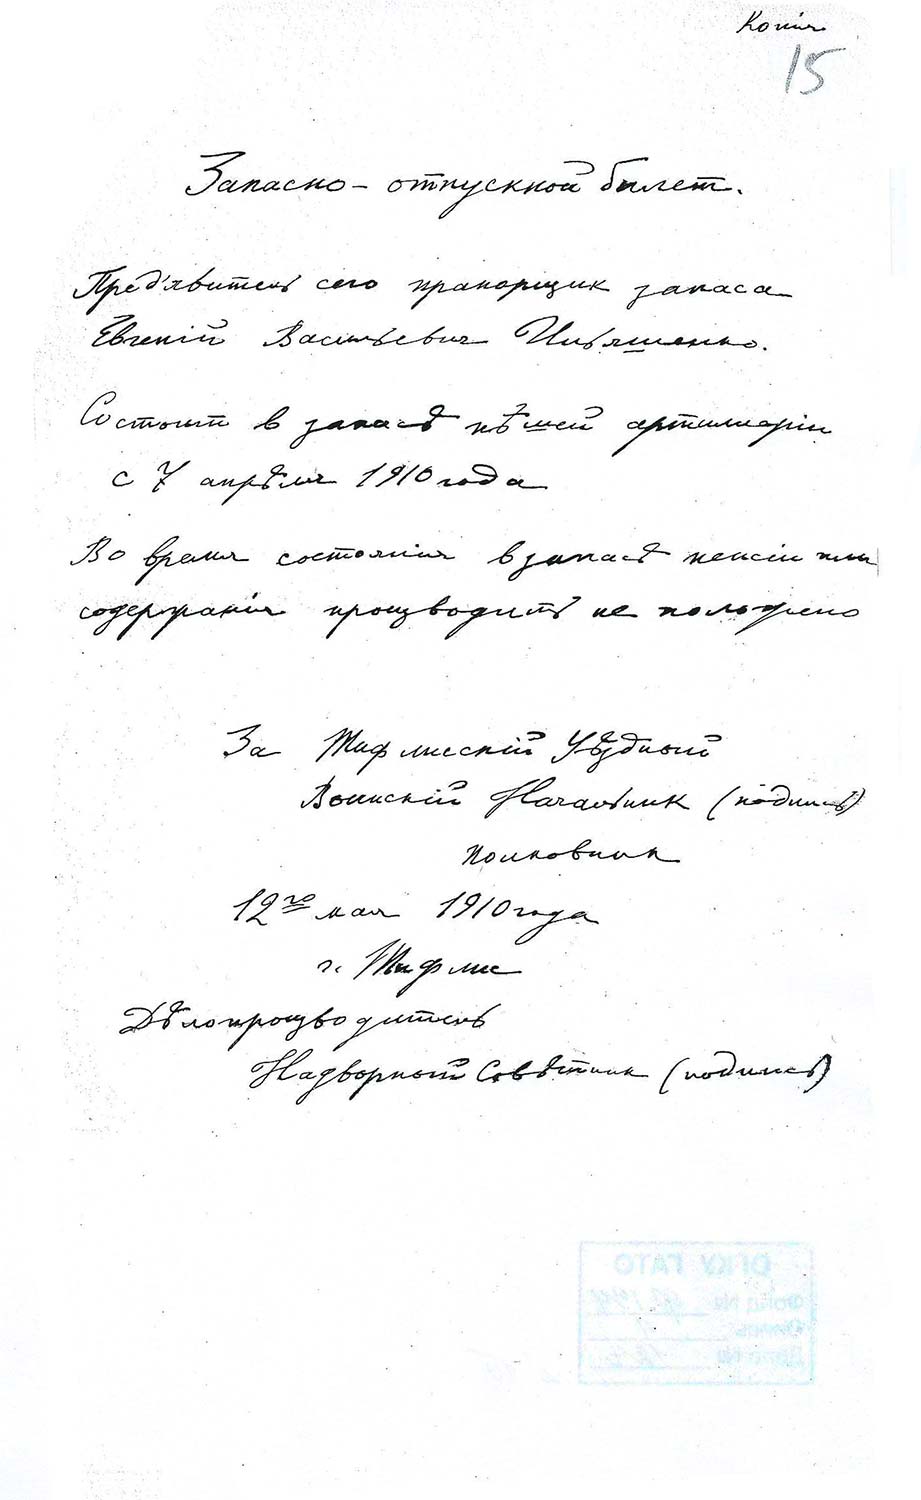 Копія
15
Запасно-отпускной билет.
Пред'явитель сего прапорщик запаса
Евгеній Васильевич Ильяшенко.
Состоит в запасѣ пѣшей артиллеріи
с 7 апрѣля 1910 года
Во время состоянія в запасѣ пенсіи или
содержанія производить не положено
За Тифлисскій Уѣздный
Воинскій Начальник (подпись)
полковник
12го мая 1910 года
г. Тифлис
Дѣлопроизводитель
Надворный Совѣтник (подпись)
ОГКУ ГАТО
Фонд №
Опись
Дело №